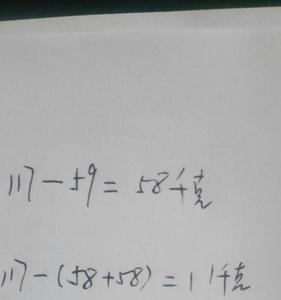 117-59=58千克
117-(58+58)=11千克